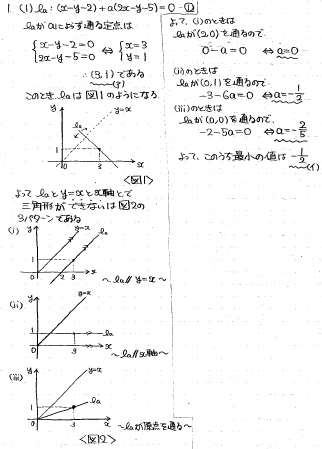 1. (1) la : (x-y-2)+a(2x-y-5)=0 ‥①
laがaによらず通る定点は
{x-y-2=0 2x-y-5=0 ⇔ {x=3 y=1
∴(3,1)である
(ア)
このとき、laは図1のようになる
y
y=x
la
1
0
3
x
<図1>
よってlaとy=xとx軸とで
三角形ができないは図2の
3パターンである
(i)
y
y=x
la
1
0
3
x
~la∥y=x~
(ii)
y
y=x
1
la
0
3
x
~la∥x軸~
(iii)
y
y=x
1
la
0
3
x
~laが原点を通る~
<図2>
よって、(i)のときは
laが(2,0)を通るので
0-a=0 ⇔a=0
(ii)のときは
laが(0,1)を通るので
-3-6a=0 ⇔a=-1/3
(iii)のときは
laが(0,0)を通るので
-2-5a=0 ⇔a=-2/5
よって、このうち最小の値は
(イ)